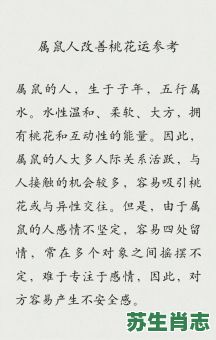 属鼠人改善桃花运参考
属鼠的人，生于子年，五行属
水。水性温和、柔软、大方，拥
有桃花和互动性的能量。因此，
属鼠的人大多人际关系活跃，与
人接触的机会较多，容易吸引桃
花或与异性交往。但是，由于属
鼠的人感情不坚定，容易四处留
情，常在多个对象之间摇摆不
定，难于专注于感情，因此，对
方容易产生不安全感。
苏生肖志